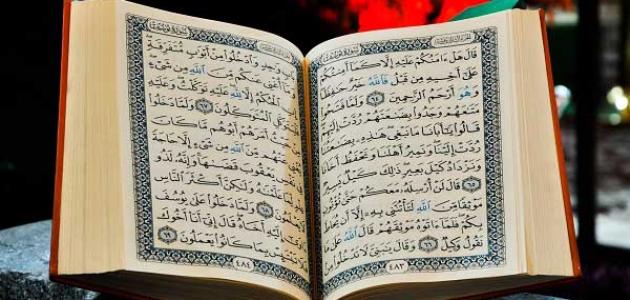 سُورَةُ يُوسُفَ
قَالَ هَلْ ءَامَنُكُمْ عَلَيْهِ إِلَّا كَمَآ أَمِنتُكُمْ
عَلَىٰٓ أَخِيهِ مِن قَبْلُ فَٱللَّهُ خَيْرٌ حَٰفِظًا
وَهُوَ أَرْحَمُ ٱلرَّٰحِمِينَ ٦٤ وَلَمَّا فَتَحُوا۟
مَتَٰعَهُمْ وَجَدُوا۟ بِضَٰعَتَهُمْ رُدَّتْ إِلَيْهِمْ
قَالُوا۟ يَٰٓأَبَانَا مَا نَبْغِى هَٰذِهِۦ بِضَٰعَتُنَا
رُدَّتْ إِلَيْنَا وَنَمِيرُ أَهْلَنَا وَنَحْفَظُ أَخَانَا
وَنَزْدَادُ كَيْلَ بَعِيرٍ ذَٰلِكَ كَيْلٌ يَسِيرٌ
٦٥ قَالَ لَنْ أُرْسِلَهُۥ مَعَكُمْ حَتَّىٰ تُؤْتُونِ
مَوْثِقًا مِّنَ ٱللَّهِ لَتَأْتُنَّنِى بِهِۦٓ إِلَّآ أَن يُحَاطَ
بِكُمْ فَلَمَّآ ءَاتَوْهُ مَوْثِقَهُمْ قَالَ ٱللَّهُ عَلَىٰ مَا
نَقُولُ وَكِيلٌ ٦٦ وَقَالَ يَٰبَنِىَّ لَا تَدْخُلُوا۟ مِنۢ
٤٨٣
سُورَةُ يُوسُفَ
بَابٍ وَٰحِدٍ وَٱدْخُلُوا۟ مِنْ أَبْوَٰبٍ مُّتَفَرِّقَةٍ
وَمَآ أُغْنِى عَنكُم مِّنَ ٱللَّهِ مِن شَىْءٍ
إِنِ ٱلْحُكْمُ إِلَّا لِلَّهِ عَلَيْهِ تَوَكَّلْتُ وَعَلَيْهِ
فَلْيَتَوَكَّلِ ٱلْمُتَوَكِّلُونَ ٦٧ وَلَمَّا دَخَلُوا۟
مِنْ حَيْثُ أَمَرَهُمْ أَبُوهُم مَّا كَانَ
يُغْنِى عَنْهُم مِّنَ ٱللَّهِ مِن شَىْءٍ إِلَّا حَاجَةً
فِى نَفْسِ يَعْقُوبَ قَضَىٰهَا وَإِنَّهُۥ لَذُو
عِلْمٍ لِّمَا عَلَّمْنَٰهُ وَلَٰكِنَّ أَكْثَرَ ٱلنَّاسِ
لَا يَعْلَمُونَ ٦٨ وَلَمَّا دَخَلُوا۟ عَلَىٰ يُوسُفَ
ءَاوَىٰٓ إِلَيْهِ أَخَاهُ قَالَ إِنِّىٓ أَنَا۠ أَخُوكَ
فَلَا تَبْتَئِسْ بِمَا كَانُوا۟ يَعْمَلُونَ ٦٩
٤٨٤